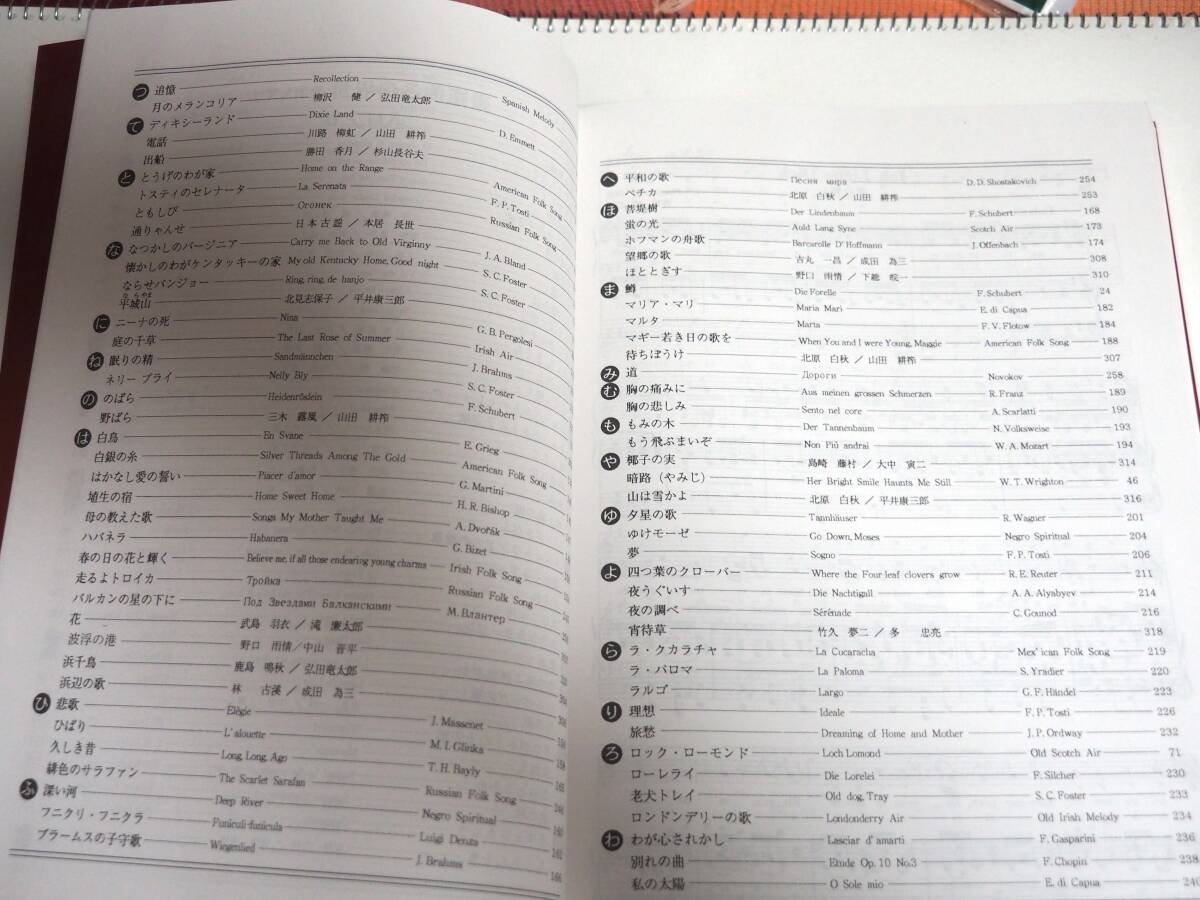 つ 追憶 Recollection Spanish Melody
月のメランコリア 柳沢 健 / 弘田竜太郎
て ディキシーランド Dixie Land D. Emmett
電話 川路 柳虹 / 山田 耕筰
出船 勝田 香月 / 杉山長谷夫
と とうげのわが家 Home on the Range American Folk Song
トスティのセレナータ La Serenata F. P. Tosti
ともしび Огонек Russian Folk Song
通りゃんせ 日本古謡 / 本居 長世
な なつかしのバージニア Carry me Back to Old Virginny J. A. Bland
懐かしのわがケンタッキーの家 My old Kentucky Home, Good night S. C. Foster
ならせバンジョー Ring, ring, de banjo S. C. Foster
平城山 北見志保子 / 平井康三郎
に ニーナの死 Nina G. B. Pergolesi
庭の千草 The Last Rose of Summer Irish Air
ね 眠りの精 Sandmännchen J. Brahms
ネリー ブライ Nelly Bly S. C. Foster
の のばら Heidenröslein F. Schubert
野ばら 三木 露風 / 山田 耕筰
は 白鳥 En Svane E. Grieg
白銀の糸 Silver Threads Among The Gold American Folk Song
はかなし愛の誓い Piacer d'amor G. Martini
埴生の宿 Home Sweet Home H. R. Bishop
母の教えた歌 Songs My Mother Taught Me A. Dvořák
ハバネラ Habanera G. Bizet
春の日の花と輝く Believe me, if all those endearing young charms Irish Folk Song
走るよトロイカ Тройка Russian Folk Song
バルカンの星の下に Под Звездами Балканскими М. Влантер
花 武島 羽衣 / 滝 廉太郎
波浮の港 野口 雨情/中山 晋平
浜千鳥 鹿島 鳴秋 / 弘田竜太郎
浜辺の歌 林 古溪 / 成田 為三
ひ 悲歌 Elégie J. Massenet
ひばり L'alouette M. I. Glinka
久しき昔 Long, Long, Ago T. H. Bayly
緋色のサラファン The Scarlet Sarafan Russian Folk Song
ふ 深い河 Deep River Negro Spiritual
フニクリ・フニクラ Funiculi-funicula Luigi Denza
ブラームスの子守歌 Wiegenlied J. Brahms 166
へ 平和の歌 Песня мира D. D. Shostakovich 254
ペチカ 北原 白秋 / 山田 耕筰 253
ほ 菩堤樹 Der Lindenbaum F. Schubert 168
蛍の光 Auld Lang Syne Scotch Air 173
ホフマンの舟歌 Barcarolle D'Hoffmann J. Offenbach 174
望郷の歌 吉丸 一昌 / 成田 為三 308
ほととぎす 野口 雨情 / 下總 皖一 310
ま 鱒 Die Forelle F. Schubert 24
マリア・マリ Maria Mari E. di Capua 182
マルタ Marta F. V. Flotow 184
マギー若き日の歌を When You and I were Young, Maggie American Folk Song 188
待ちぼうけ 北原 白秋 / 山田 耕筰 307
み 道 Дороги Novokov 258
む 胸の痛みに Aus meinen grossen Schmerzen R. Franz 189
胸の悲しみ Sento nel core A. Scarlatti 190
も もみの木 Der Tannenbaum N. Volksweise 193
もう飛ぶまいぞ Non Più andrai W. A. Mozart 194
や 椰子の実 島崎 藤村 / 大中 寅二 314
暗路（やみじ） Her Bright Smile Haunts Me Still W. T. Wrighton 46
山は雪かよ 北原 白秋 / 平井康三郎 316
ゆ 夕星の歌 Tannhäuser R. Wagner 201
ゆけモーゼ Go Down, Moses Negro Spiritual 204
夢 Sogno F. P. Tosti 206
よ 四つ葉のクローバー Where the Four leaf clovers grow R. E. Reuter 211
夜うぐいす Die Nachtigall A. A. Alyabyev 214
夜の調べ Sérénade C. Gounod 216
宵待草 竹久 夢二 / 多 忠亮 318
ら ラ・クカラチャ La Cucaracha Mex'ican Folk Song 219
ラ・パロマ La Paloma S. Yradier 220
ラルゴ Largo G. F. Händel 223
り 理想 Ideale F. P. Tosti 226
旅愁 Dreaming of Home and Mother J. P. Ordway 232
ろ ロック・ローモンド Loch Lomond Old Scotch Air 71
ローレライ Die Lorelei F. Silcher 230
老犬トレイ Old dog, Tray S. C. Foster 233
ロンドンデリーの歌 Londonderry Air Old Irish Melody 234
わ わが心されかし Lasciar d'amarti F. Gasparini 236
別れの曲 Etude Op. 10 No.3 F. Chopin 238
私の太陽 O Sole mio E. di Capua 240